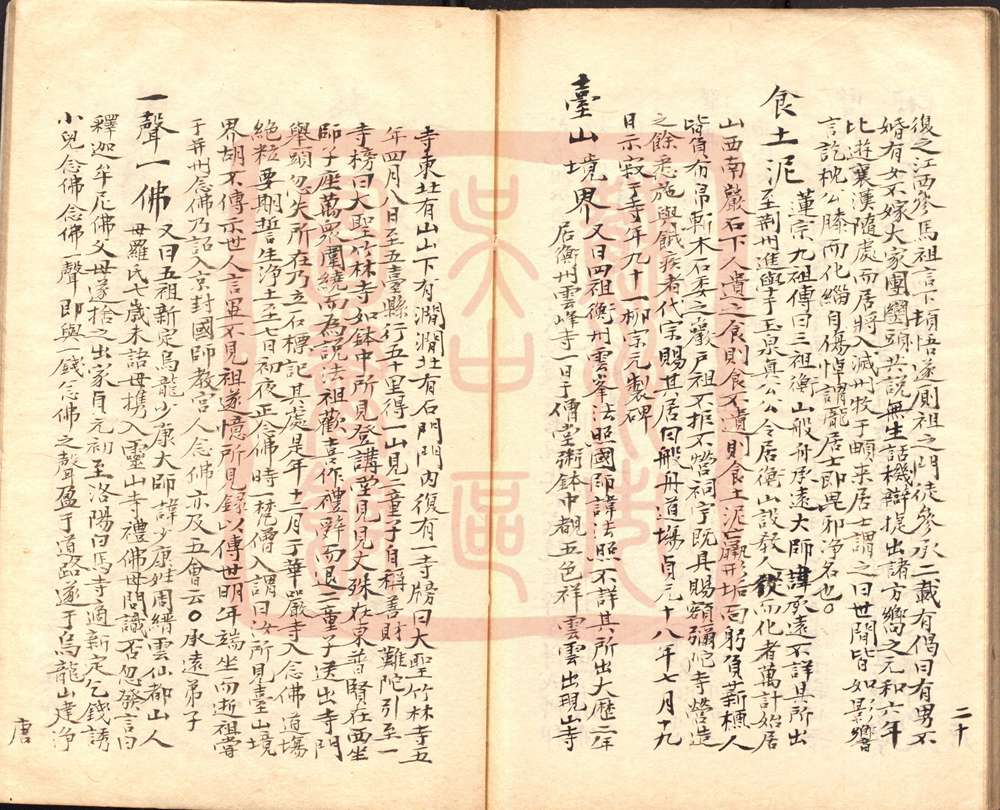 復之江西參馬祖言下頓悟遂廁祖之門徒參承二載有偈曰有男不
婚有女不嫁大家團圞頭共説無生話機辯提出諸方嚮之元和六年
北遊襄漢隨處而居將入滅州牧于頔來居士謂之曰世間皆如影響
言訖枕公膝而化緇白傷悼謂龐居士即毘邪淨名也○
二十
食土泥 蓮宗九祖傳曰三祖衡山般舟承遠大師諱承遠不詳其所出
至荆州進學于玉泉真公公令居衡山設教人從而化者萬計始居
山西南巖石下人遺之食則食不遺則食土泥羸形垢面躬負薪樵人
皆負布帛斬木石委之巖戶祖不拒不營祠宇既具賜額彌陀寺營造
之餘悉施與餓疾者代宗賜其居曰般舟道場貞元十八年七月十九
日示寂于寺年九十一柳宗元製碑
臺山境界 又曰四祖衡州雲峯法照國師諱法照不詳其所出大歷二年
居衡州雲峰寺一日于僧堂粥鉢中覩五色祥雲雲出現山寺
寺東北有山山下有澗澗北有石門門內復有一寺牓曰大聖竹林寺五
年四月八日至五臺縣行五十里得一山見二童子自稱善財難陀引至一
寺榜曰大聖竹林寺如鉢中所見登講堂見見文殊在東普賢在西坐
師子座萬衆圍繞而為説法祖歡喜作禮辭而退二童子送出寺門
舉頭忽失所在乃立石標記其處是年十二月于華嚴寺入念佛道塲
絶粒要期誓生淨土至七日初夜正念佛時一梵僧入謂曰汝所見臺山境
界胡不傳示世人言畢不見祖遂憶所見録以傳世明年端坐而逝祖嘗
于并州念佛乃詔入京封國師教宮人念佛亦及五會云○承遠弟子
一聲一佛 又曰五祖新定烏龍少康大師諱少康姓周縉雲仙都山人
母羅氏七歲未語母携入靈山寺禮佛母問識否忽發言曰
釋迦牟尼佛父母遂捨之出家貞元初至洛陽白馬寺適新定乞錢誘
小兒念佛念佛一聲即與一錢念佛之聲盈于道路遂于烏龍山建淨
唐